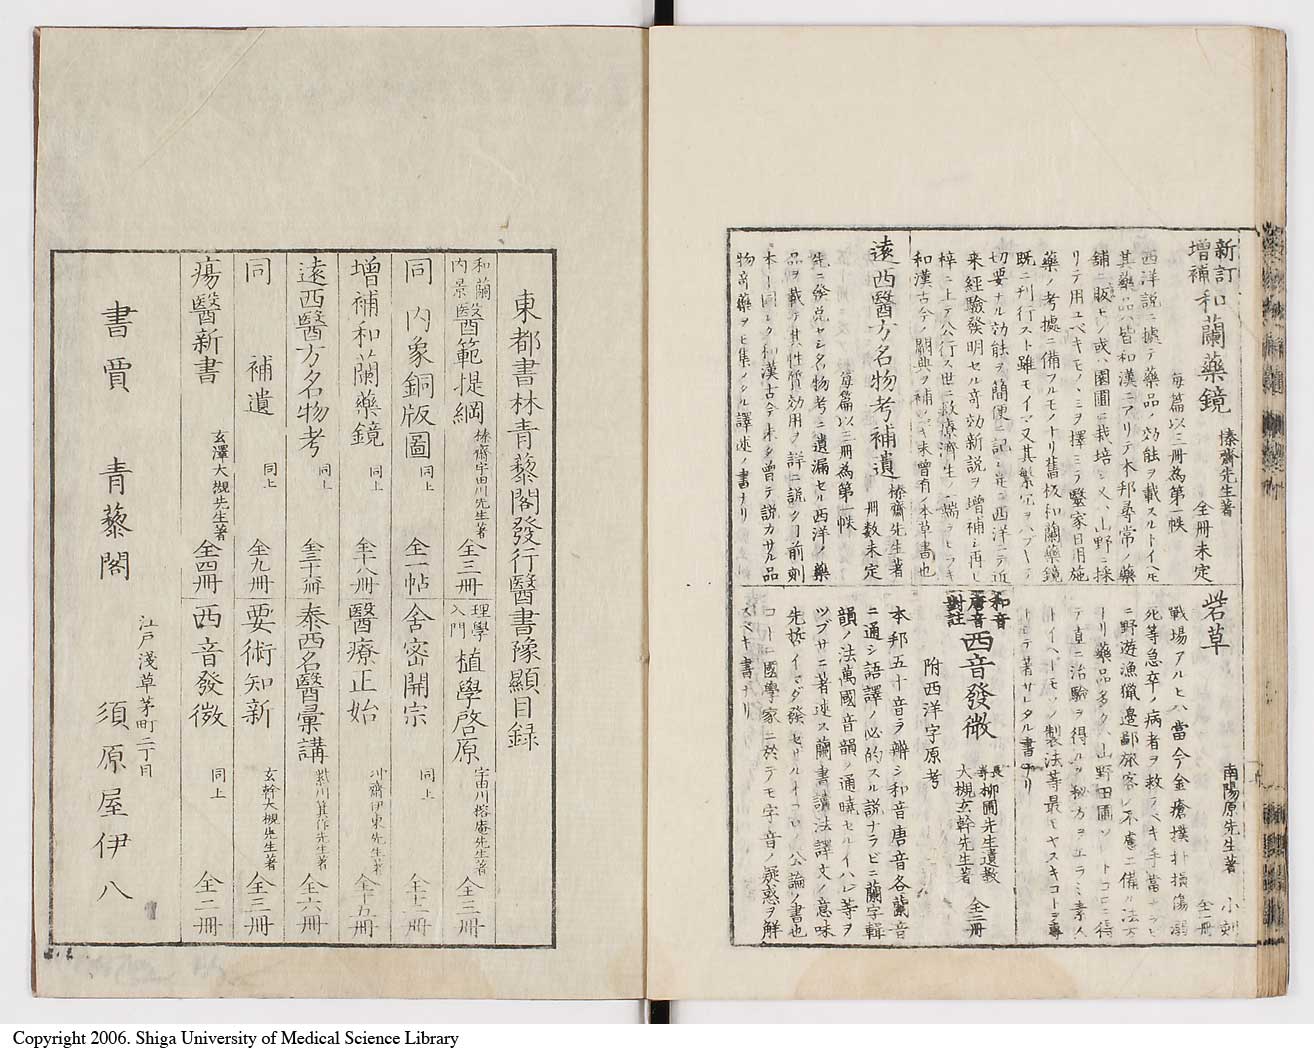 新訂增補和蘭藥鏡 榛齋先生著
每篇以三冊為第一帙 全冊未定
西洋説ニ據テ藥品ノ効能ヲ載スルトイヘモ
其藥品ハ皆和漢ニアリテ本邦尋常ノ藥
舖ニ販セノ或ハ園圃ニ栽培シ又ハ山野ニ採
リテ用ユベキモノヽミヲ擇ミテ醫家日用施
藥ノ考據ニ備フルモノナリ舊板和蘭藥鏡
既ニ刊行スト雖モイマ又其繁冗ヲハブキテ
切要ナル効能ヲ簡便ニ記シ並ニ西洋ニテ近
來經驗發明セル奇効新説ヲ增補シ再ヒ
梓ニ上テ公行ス世ニ救療濟生ノ一端ヲヒラキ
和漢古今ノ闕典ヲ補シキ未曾有ノ本草書也
遠西醫方名物考補遺 榛齋先生著
每篇以三冊為第一帙 冊數未定
先ニ發兌セシ名物考ニ遺漏セル西洋ノ藥
品ヲ載テ其性質効用ヲ詳ニ説ク前刻
本ト同シク和漢古今未タ曾テ説カサル品
物奇藥ヲモ集メシル譯述ノ書ナリ
砦草 南陽原先生著 小刻 全一冊
戰場アルヒハ當今金瘡撲扑損傷溺
死等急卒ノ病者ヲ救フベキ手當ナラヒ
ニ野遊漁獵邊鄙旅客ノ不慮ニ備ル法方
ナリ藥品多クハ山野田圃ノトコロニ得
テ直ニ治驗ヲ得ルヲ秘方ヲエラミ素人
トイヘトモソノ製法等最モヤスキコトヲ專
トモテ著サレタル書ナリ
和音唐音對註 西音發微 長嵜柳圃先生遺教 大槻玄幹先生著 全二冊
附西洋字原考
本邦五十音ヲ辨シ和音唐音各蘭音
ニ通シ語譯ノ必的スル説ナラビニ蘭字輯
韻ノ法萬國音韻ノ通曉セルイハレ等ヲ
ツブサニ著述ス蘭書讀法譯文ノ意味
先哲イマダ發セザルイコロノ公論ノ書也
コトニ國學家ニ於テモ字音ノ疑惑ヲ解
スベキ書ナリ
東都書林青藜閣發行醫書豫顯目録
和蘭内景 醫範提綱 榛齋宇田川先生著 全三冊
理學入門 植學啓原 宇田川榕庵先生著 全三冊
同 内象銅版圖 同上 全一帖
舍密開宗 同上 全十二冊
增補和蘭藥鏡 同上 全十八冊
醫療正始 冲齋伊東先生著 全十五冊
遠西醫方名物考 同上 全三十六冊
泰西名醫彙講 紫川箕作先生著 全六冊
同 補遺 同上 全九冊
要術知新 玄幹大槻先生著 全三冊
瘍醫新書 玄澤大槻先生著 全四冊
西音發微 同上 全二冊
江戸淺草茅町二丁目
書賈 青藜閣 須原屋伊八
Copyright 2006. Shiga University of Medical Science Library